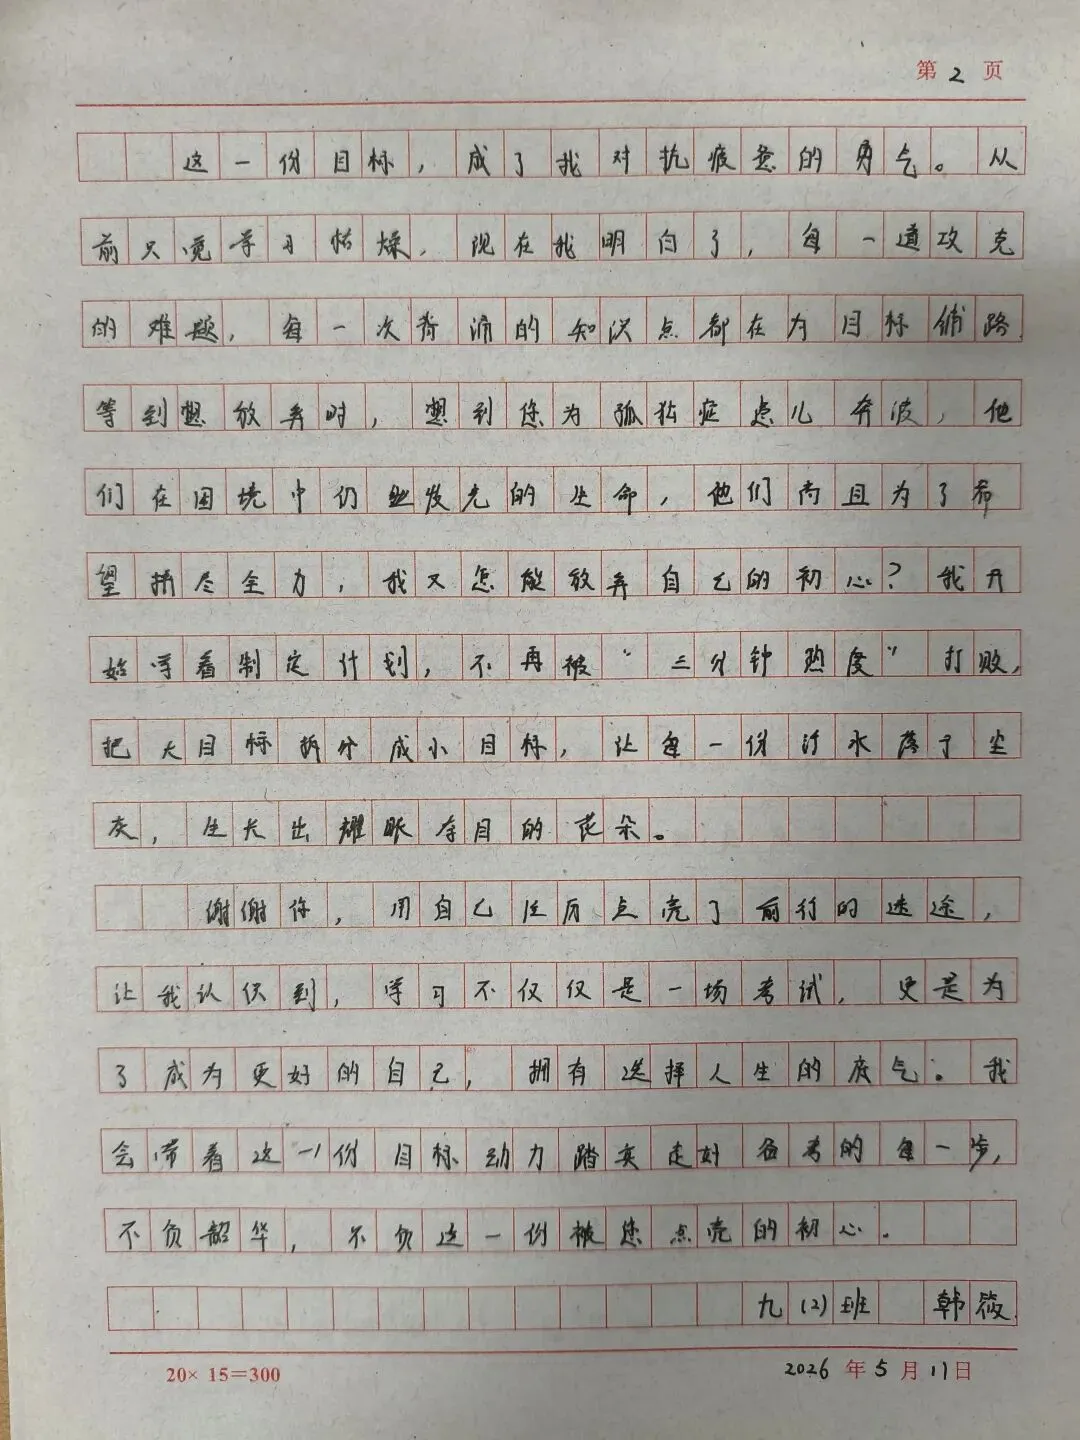 第2页
这一份目标，成了我对抗疲惫的勇气。从
前只觉学习枯燥，现在我明白了，每一道攻克
的难题，每一次背诵的知识点都在为目标铺路.
等到想放弃时，想到您为孤独症患儿奔波，他
们在困境中仍然发光的生命，他们尚且为了希
望拼尽全力，我又怎能放弃自己的初心？我开
始学着制定计划，不再被“三分钟热度”打败，
把大目标拆分成小目标，让每一份汗水落于尘
灰，生长出耀眼夺目的花朵。
谢谢你，用自己经历点亮了前行的迷途，
让我认识到，学习不仅仅是一场考试，更是为
了成为更好的自己，拥有选择人生的底气。我
会带着这一份目标动力踏实走好备考的每一步，
不负韶华，不负这一份被您点亮的初心.
九(2)班 韩筱
20×15=300 2026年5月11日